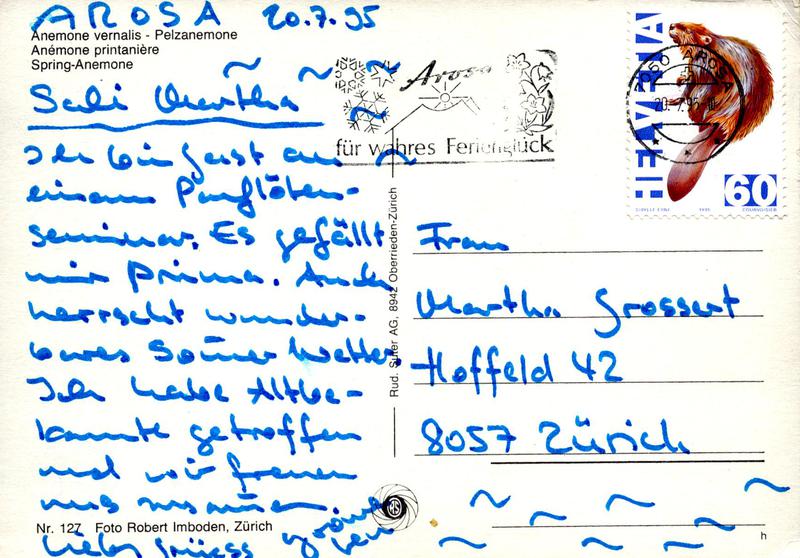 AROSA 20.7.95
Anemone vernalis - Pelzanemone
Anémone printanière
Spring-Anemone
Sali Martha
Ich bin fast an
einem Panflöten-
seminar. Es gefällt
mir prima. Auch
herrscht wunder-
bares Somer Wetter.
Ich habe Altbe-
kannte getroffen
und wir freuen
uns zusammen
Nr. 127 Foto Robert Imboden, Zürich
Liebe Grüess
Arosa
für wahres Ferienglück
7050 AROSA
20.7.95
HELVETIA
60
1995
COURVOISIER
Rud. Suter AG, 8942 Oberrieden-Zürich
Frau
Martha Grossert
Hoffeld 42
8057 Zürich
h